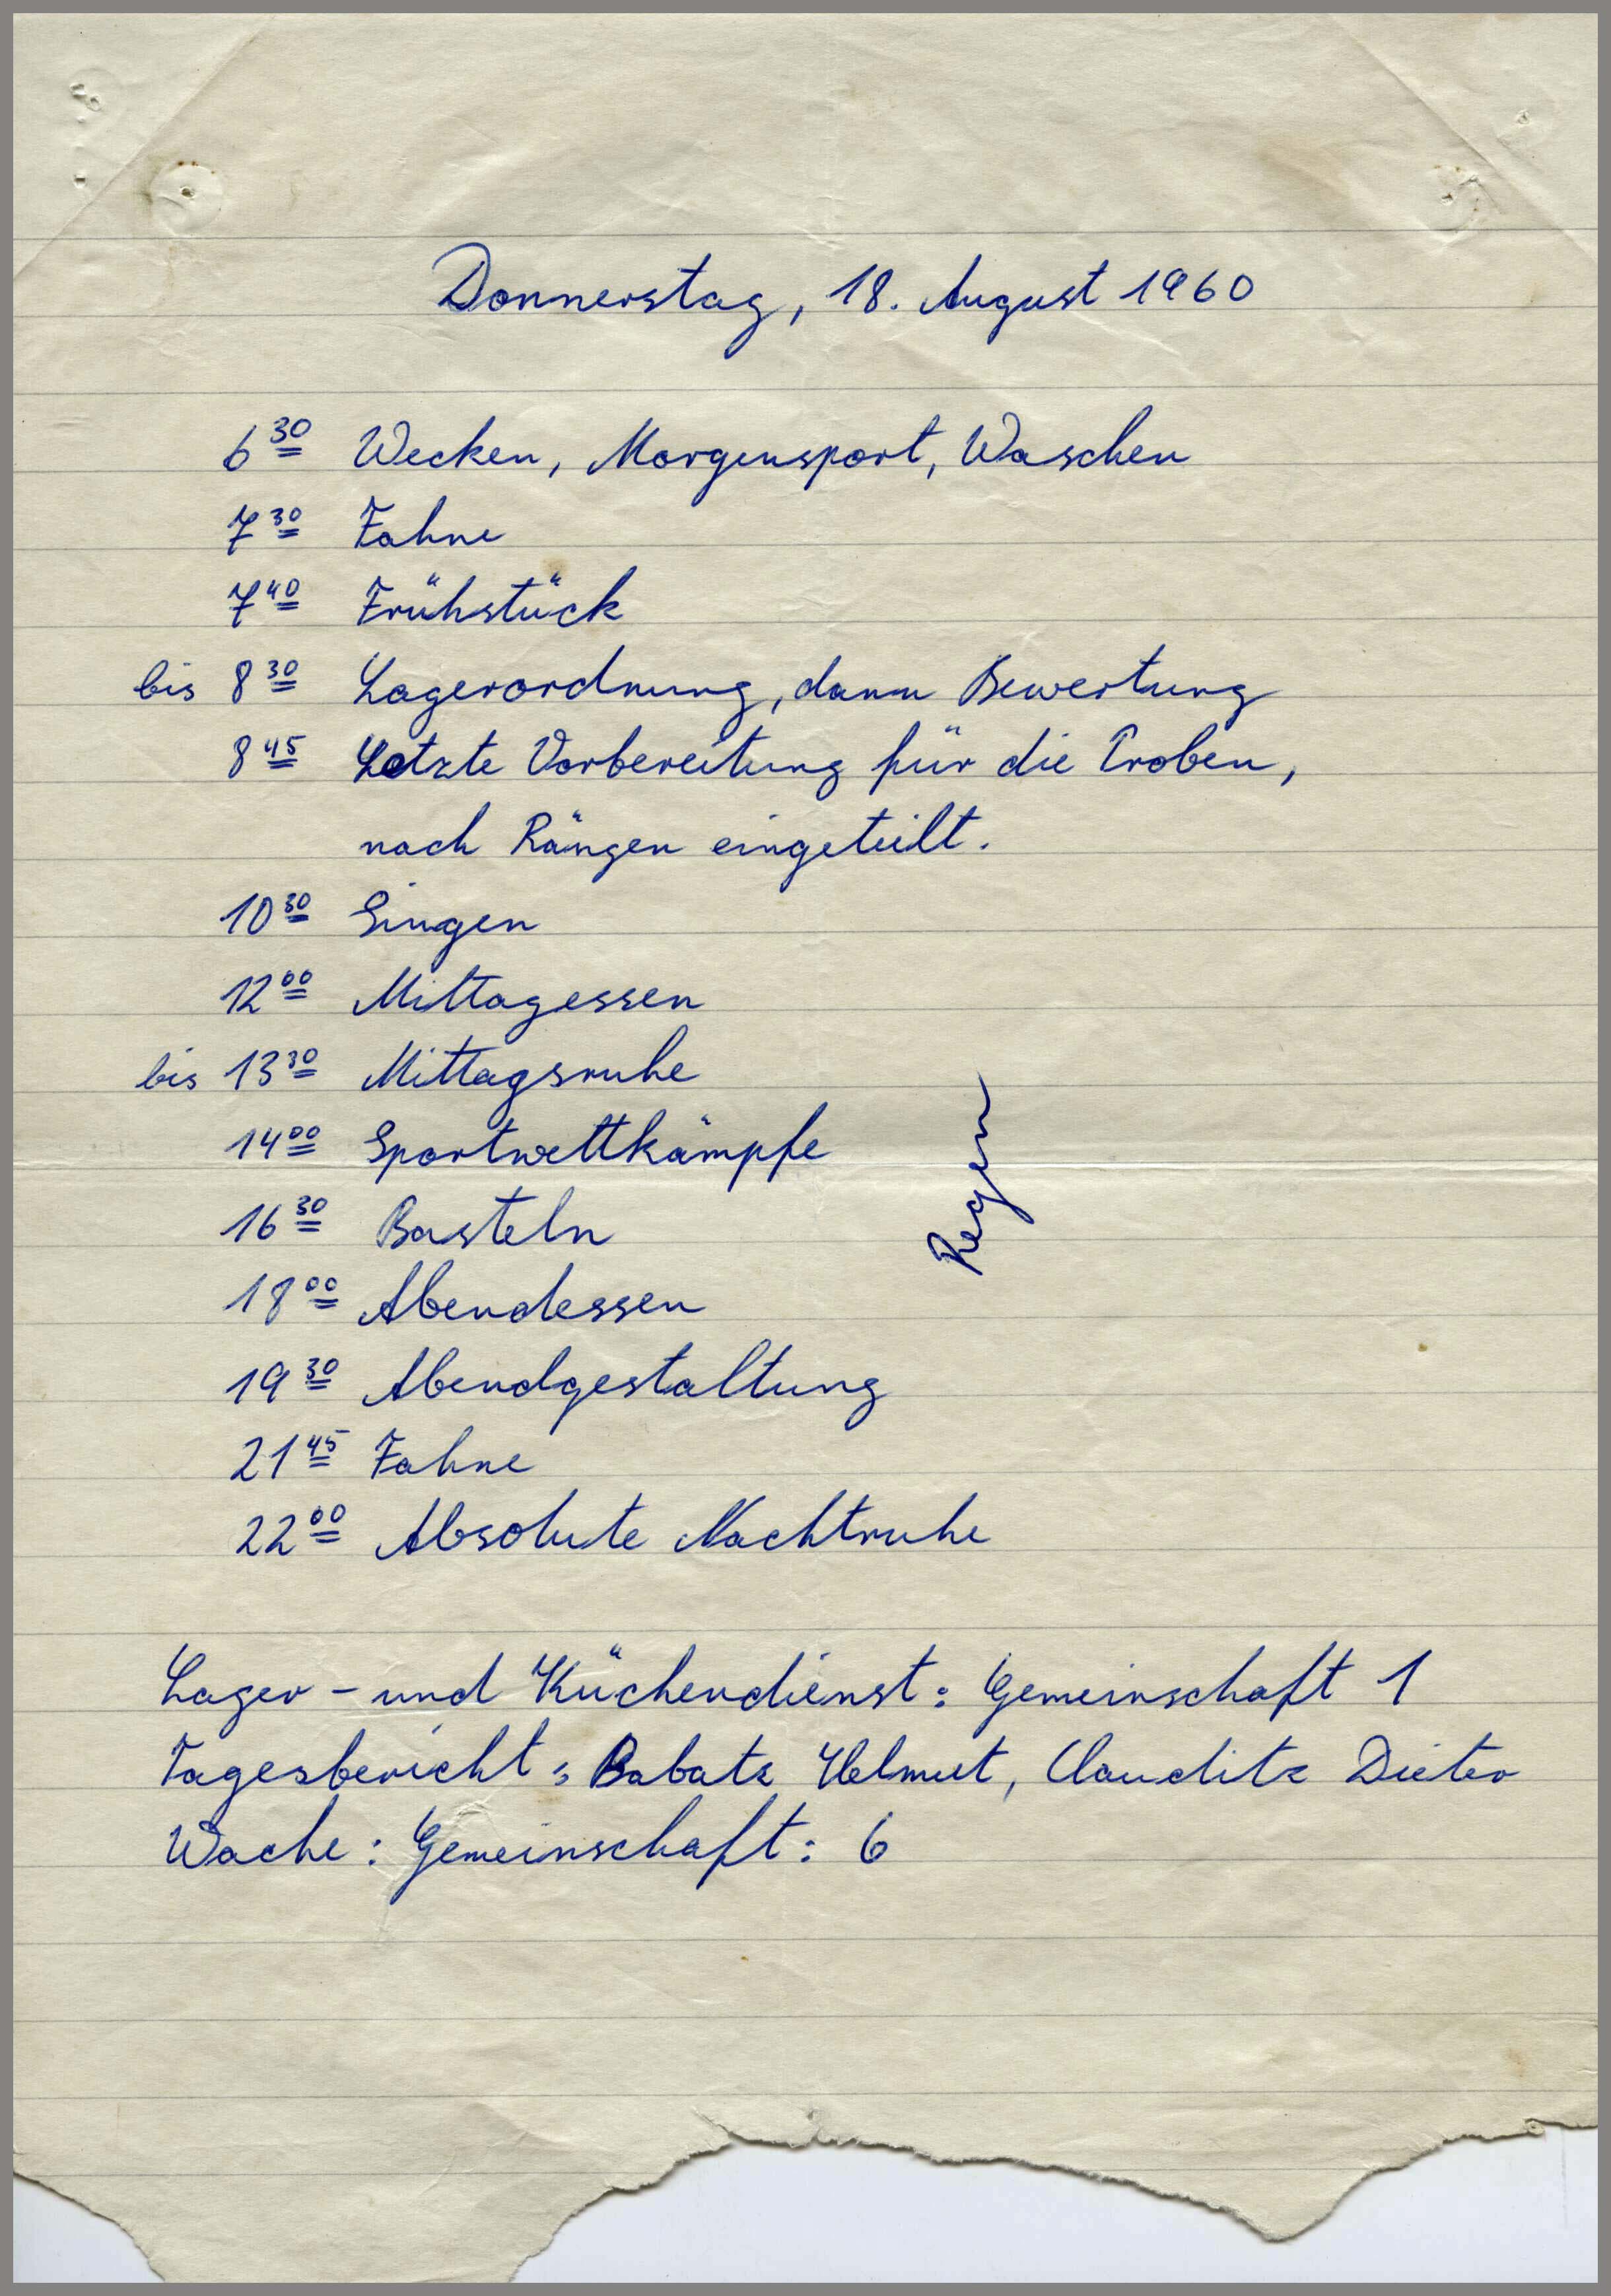 Donnerstag, 18. August 1960
6 30 Wecken, Morgensport, Waschen
7 30 Fahne
7 40 Frühstück
bis 8 30 Lagerordnung, dann Bewertung
8 45 Letzte Vorbereitung für die Proben,
nach Rängen eingeteilt.
10 30 Singen
12 00 Mittagessen
bis 13 30 Mittagsruhe
14 00 Sportwettkämpfe
Regen
16 30 Basteln
18 00 Abendessen
19 30 Abendgestaltung
21 45 Fahne
22 00 Absolute Nachtruhe
Lager - und Küchendienst: Gemeinschaft 1
Tagesbericht: Babatz Helmut, Clauditz Dieter
Wache: Gemeinschaft: 6